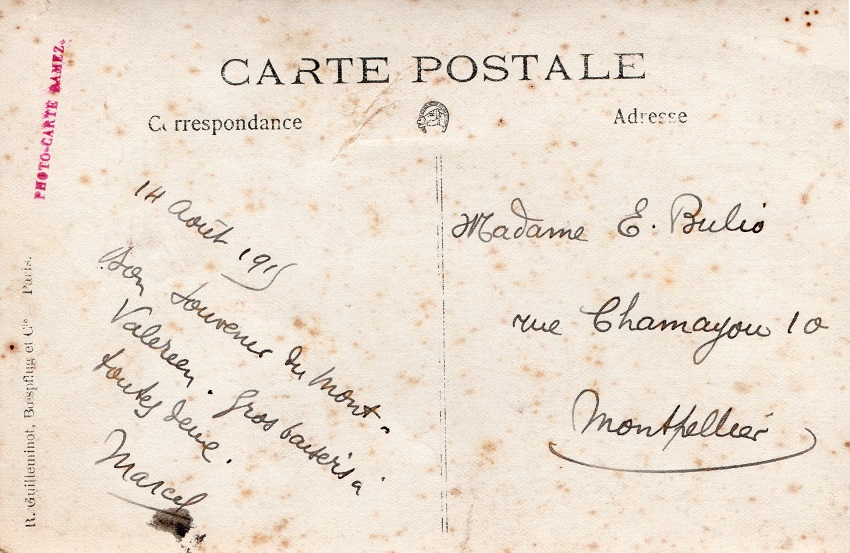 CARTE POSTALE
Correspondance
Adresse
PHOTO-CARTE DAMEZ.
R. Guilleminot, Bœspflug et Cie Paris.
14 Août 1915
Bon souvenir du Mont-
Valereen. Gros baisers à
toutes deux.
Marcel
Madame E. Bulio
rue Chamayou 10
Montpellier